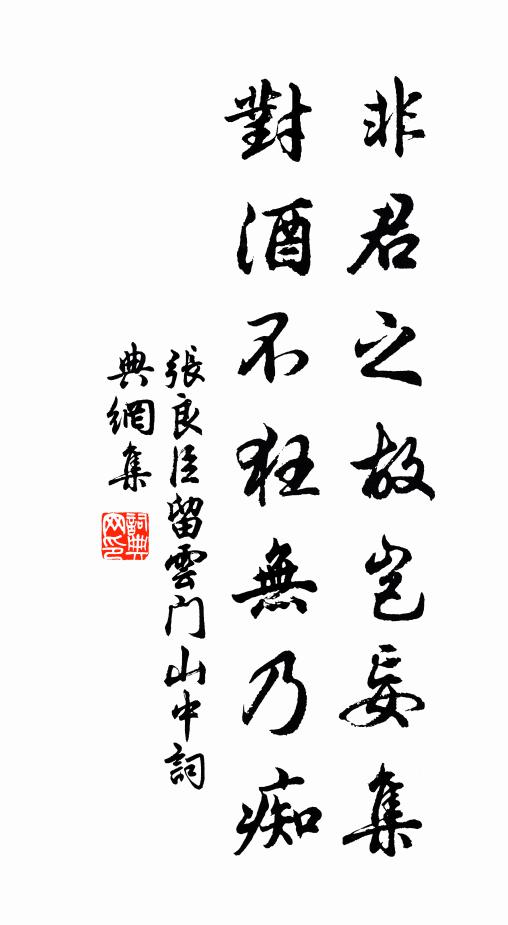 非君之故豈妄集
對酒不狂無乃痴
張良臣留雲门山中詞
典網集
詞典
网印